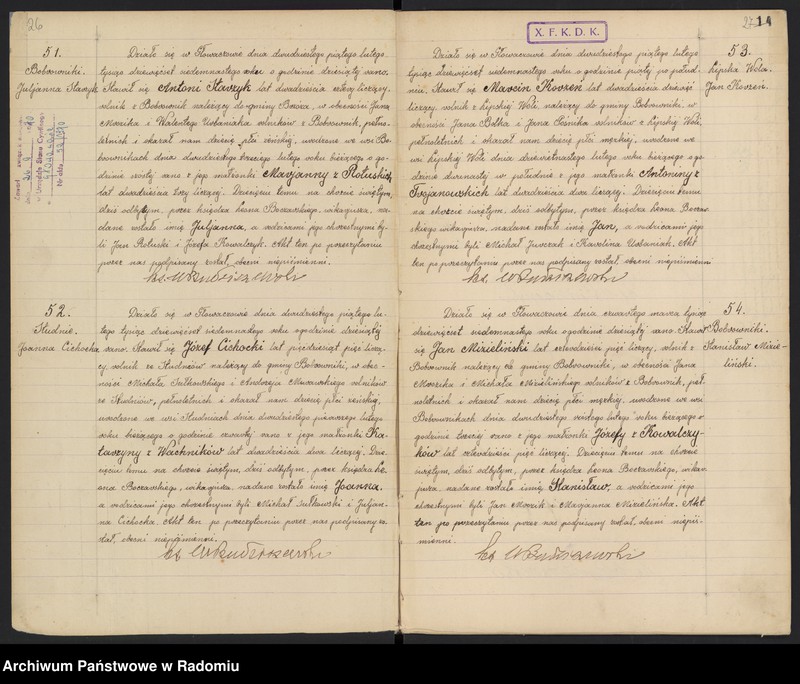 26
51.
Bobrowniki.
Juljanna Stawczyk
Działo się w Głowaczowie dnia dwudziestego piątego lutego
tysiąc dziewięćset siedemnastego roku o godzinie dziesiątej rano.
Stawił się Antoni Stawczyk lat dwadzieścia cztery liczący,
rolnik z Bobrownik należący do gminy w obecności Jana
Mroczka i Walentego Urbaniaka rolników z Bobrownik, pełno-
letnich i okazał nam dziecię płci żeńskiej, urodzone we wsi Bo-
brownikach dnia dwudziestego trzeciego lutego roku bieżącego o go-
dzinie szóstej rano z jego małżonki Maryanny z Roluskich,
lat dwadzieścia trzy liczącej. Dziecięciu temu na chrzcie świętym,
dziś odbytym, przez księdza Leona Boczarskiego, wikaryusza, na-
dane zostało imię Juljanna, a rodzicami jego chrzestnymi by-
li Jan Roluski i Józefa Kowalczyk. Akt ten po przeczytaniu
przez nas podpisany został, obecni niepiśmienni.
52.
Studnie.
Joanna Cichocka
Działo się w Głowaczowie dnia dwudziestego piątego lu-
tego tysiąc dziewięćset siedemnastego roku o godzinie dziesiątej
rano. Stawił się Józef Cichocki lat pięćdziesiąt pięć liczą-
cy, rolnik ze Studniów należący do gminy Bobrowniki, w obe-
cności Michała Sułkowskiego i Andrzeja Murawskiego rolników
ze Studniów, pełnoletnich i okazał nam dziecię płci żeńskiej,
urodzone we wsi Studniach dnia dwudziestego pierwszego lutego
roku bieżącego o godzinie czwartej rano z jego małżonki Ka-
tarzyny z Wachników lat dwadzieścia dwa liczącej. Dzie-
cięciu temu na chrzcie świętym, dziś odbytym, przez księdza Le-
ona Boczarskiego, wikaryusza, nadane zostało imię Joanna,
a rodzicami jego chrzestnymi byli Michał Sułkowski i Juljan-
na Cichocka. Akt ten po przeczytaniu przez nas podpisany zo-
stał, obecni niepiśmienni.
X. F. K. D. K.
27
14
53.
Lipska Wola.
Jan Kroszen.
Działo się w Głowaczowie dnia dwudziestego piątego lutego
tysiąc dziewięćset siedemnastego roku o godzinie piątej po połud-
niu. Stawił się Marcin Kroszen lat dwadzieścia dziewięć
liczący, rolnik z Lipskiej Woli, należący do gminy Bobrowniki, w
obecności Jana Bolka i Jana Cośnika rolników z Lipskiej Woli,
pełnoletnich i okazał nam dziecię płci męskiej, urodzone we
wsi Lipskiej Woli dnia dziewiętnastego lutego roku bieżącego o go-
dzinie dwunastej w południe z jego małżonki Antoniny z
Trojanowskich lat dwadzieścia dwa liczącej. Dziecięciu temu
na chrzcie świętym, dziś odbytym, przez księdza Leona Boczar-
skiego wikaryusza, nadane zostało imię Jan, a rodzicami jego
chrzestnymi byli Michał Jurczak i Karolina Urbaniak. Akt
ten po przeczytaniu przez nas podpisany został, obecni niepiśmienni
54.
Bobrowniki.
Stanisław Mizie-
liński.
Działo się w Głowaczowie dnia czwartego marca tysiąc
dziewięćset siedemnastego roku o godzinie dziesiątej rano. Stawił
się Jan Mizieliński lat czterdzieści pięć liczący, rolnik z
Bobrownik należący do gminy Bobrowniki, w obecności Jana
Mroczka i Michała Mizielińskiego rolników z Bobrownik, peł-
noletnich i okazał nam dziecię płci męskiej, urodzone we wsi
Bobrownikach dnia dwudziestego szóstego lutego roku bieżącego o
godzinie trzeciej rano z jego małżonki Józefy z Kowalczy-
ków lat czterdzieści pięć liczącej. Dziecięciu temu na chrzcie
świętym, dziś odbytym, przez księdza Leona Boczarskiego, wikar-
yusza nadane zostało imię Stanisław, a rodzicami jego
chrzestnymi byli Jan Mroczek i Maryanna Mizielińska. Akt
ten po przeczytaniu przez nas podpisany został, obecni niepiś-
mienni.
Archiwum Państwowe w Radomiu